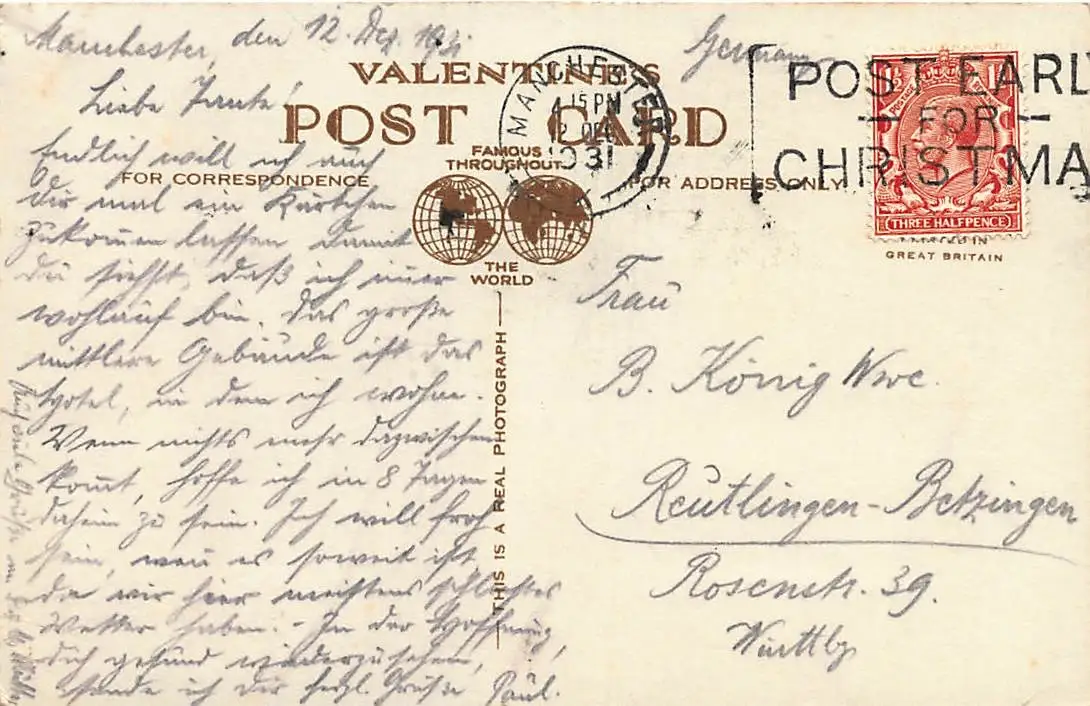 Manchester, den 12. Dez. 1931
Germany
VALENTINE'S
POST CARD
FAMOUS
THROUGHOUT
THE
WORLD
FOR CORRESPONDENCE
FOR ADDRESS ONLY
MANCHESTER
4 15 PM
12 DEC
1931
POST EARLY
FOR
CHRISTMA
THREE HALFPENCE
PRINTED IN
GREAT BRITAIN
THIS IS A REAL PHOTOGRAPH
Liebe Tante!
Endlich will ich auch
Dir mal ein Kärtchen
zukommen lassen damit
du siehst, daß ich immer
wohlauf bin. Das große
mittlere Gebäude ist das
Hotel, in dem ich wohne.
Wenn nichts mehr dazwischen
kommt, hoffe ich in 8 Tagen
daheim zu sein. Ich will froh
sein, wenn es soweit ist,
da wir hier meistens schlechtes
Wetter haben. - In der Hoffnung,
dich gesund wiederzusehen,
sende ich Dir herzl. Grüße Paul.
Grüße
Frau
B. König Wwe.
Reutlingen-Betzingen
Rosenstr. 39.
Württbg